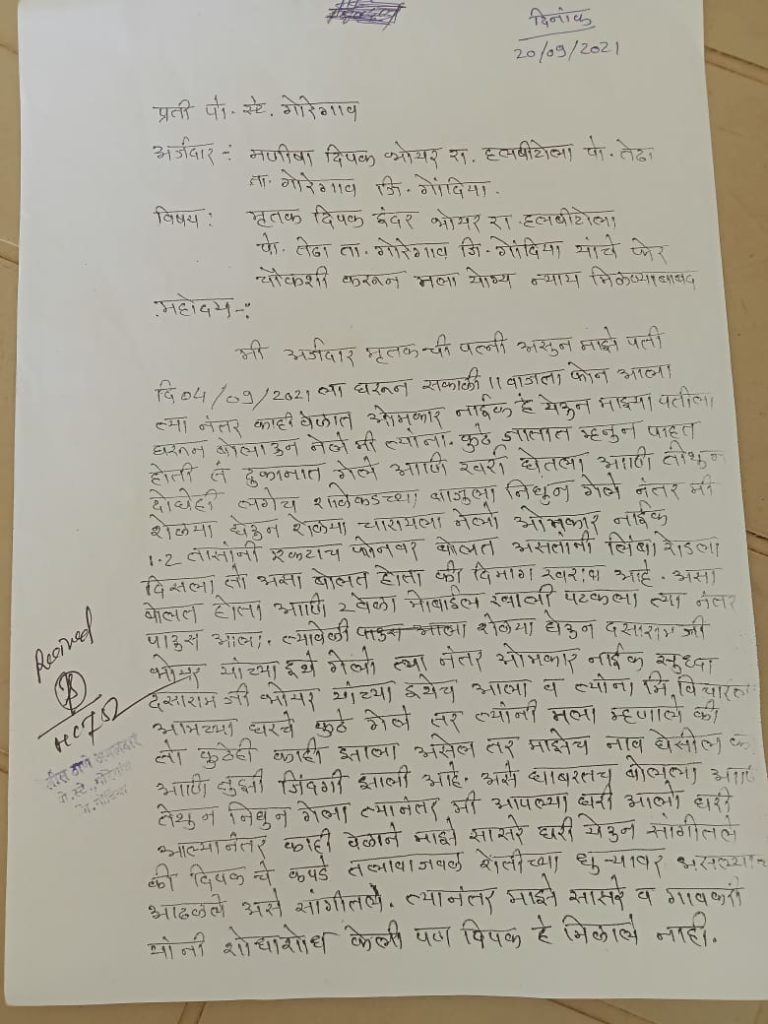 दिनांक
20/09/2021
प्रती पो. स्टे. गोरेगाव
अर्जदार :- मणीषा दिपक भोयर रा. हलबीटोला पो. तेढा
ता. गोरेगाव जि. गोंदिया.
विषय : मृतक दिपक इंदर भोयर रा. हलबीटोला
पो. तेढा ता. गोरेगाव जि. गोंदिया यांचे फेर
चौकशी करून मला योग्य न्याय मिळण्याबाबद
महोदय -:
मी अर्जदार मृतकची पत्नी असुन माझे पती
दि 04/09/2021 ला घरून सकाळी 11 वाजता फोन आला
त्या नंतर काही वेळात ओमकार नाईक हे येऊन माझ्या पतीला
घरून बोलाउन नेले मी त्यांना. कुठे जातात म्हनुन पाहत
होती तं दुकानात गेले आणि खर्रा घेतला आणि तीथुन
दोघेही लगेच शाळेकडच्या बाजुला निघुन गेले नंतर मी
शेळ्या घेऊन शेळ्या चारायला गेलो ओमकार नाईक
1.2 तासांनी एकटाच फोनवर बोलत असतांनी लिंबा रोडला
दिसला तो असा बोलत होता की दिमाग खराब आहे. असा
बोलत होता आणि 2 वेळा मोबाईल खाली पटकला त्या नंतर
पाउस आला. त्यावेळी पाउस आला शेळ्या घेऊन दसाराम जी
भोयर यांच्या इथे गेलो त्या नंतर ओमकार नाईक सुध्दा
दसाराम जी भोयर यांच्या इथेच आला व त्यांना मि. विचारल
आमच्या घरचे कुठे गेले तर त्यांनी मला म्हणाले की
तो कुठेही काही झाला असेल तर माझेच नाव घेसील का
आणि तुझी जिंदगी झाली आहे. असे घाबरतच बोलला आणि
तेथुन निघुन गेला त्यानंतर मी आपल्या घरी आलो घरी
आल्यानंतर काही वेळाने माझे सासरे घरी येऊन सांगीतले
की दिपक चे कपडे तलावाजवळ शेतीच्या धुऱ्यावर असल्याच
आढळले असे सांगीतले. त्यानंतर माझे सासरे व गावकरी
यांनी शोधाशोध केली पण दिपक हे मिळाले नाही.
Received
HC 752